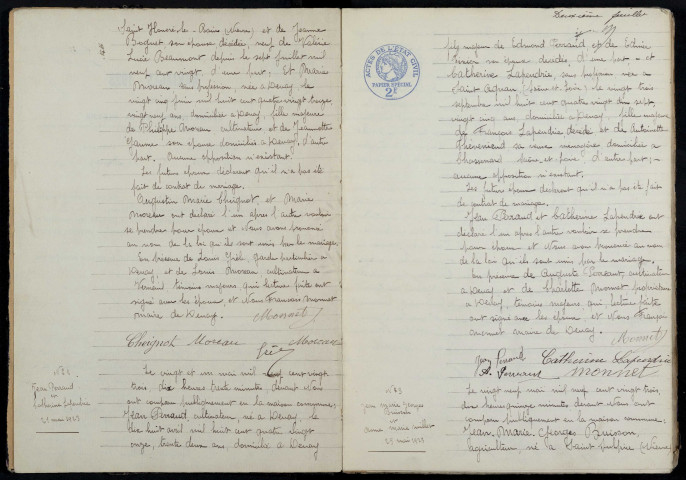 Saint Honoré-les-Bains (Nièvre) et de Jeanne
son épouse décédée, veuf de Valérie
Lucie Beaumont depuis le sept juillet mil
neuf cent vingt, d'une part; Et Marie
Moreau sans profession, née à Devay le
vingt cinq juin mil huit cent quatre vingt
vingt ans, domiciliée à Devay, fille majeure
de Philippe Moreau cultivateur et de Jeannette
son épouse domiciliés à Devay, d'autre
part. Aucune opposition n'existant.
Les futurs époux déclarent qu'il n'a pas été
fait de contrat de mariage.
Augustin Marie Chuignot, et Marie
Moreau ont déclaré l'un après l'autre vouloir
se prendre pour époux et Nous avons prononcé
au nom de la loi qu'ils sont unis par le mariage.
En présence de Louis garde particulier à
Devay, et de Louis Moreau cultivateur à
Verneuil témoins majeurs qui lecture faite ont
signé avec les époux et Nous François Monnet
maire de Devay. Monnet
Moreau Moreau
Jean Perraud
et
Catherine Lapendrie
21 mai 1923
Le vingt et un mai mil neuf cent vingt
trois, dix heures trente minutes devant Nous
ont comparu publiquement en la maison commune:
Jean Perraud cultivateur, né à Devay, le
dix huit avril mil huit cent quatre vingt
onze, trente deux ans, domicilié à Devay
Deuxième feuillet
ACTES DE L'ÉTAT CIVIL
PAPIER SPÉCIAL
2F
fils majeur de Edmond Perraud et de
son épouse décédés, d'une part, et
Catherine Lapendrie, sans profession née à
Saint Agnan (Saône et Loire) le vingt trois
septembre mil huit cent quatre vingt dix sept,
vingt cinq ans, domiciliée à Devay, fille majeure
de François Lapendrie décédé et de Antoinette
sa veuve ménagère domiciliée à
Saône et Loire, d'autre part;
aucune opposition n'existant.
Les futurs époux déclarent qu'il n'a pas été fait
de contrat de mariage.
Jean Perraud et Catherine Lapendrie ont
déclaré l'un après l'autre vouloir se prendre
pour époux et Nous avons prononcé au nom
de la loi qu'ils sont unis par le mariage.
En présence de Auguste Perraud, cultivateur
à Devay et de Charlotte Monnet
à Devay, témoins majeurs qui lecture faite
ont signé avec les époux et Nous François
Monnet maire de Devay. Monnet
Jean Perraud Catherine Lapendrie
A. Perraud Monnet
Georges
Buisson
et
Anna Marie
29 mai 1923
Le vingt neuf mai mil neuf cent vingt trois,
minutes devant Nous ont
comparu publiquement en la maison commune:
Jean, Marie, Georges Buisson,
agriculteur, né à Saint (Nièvre)